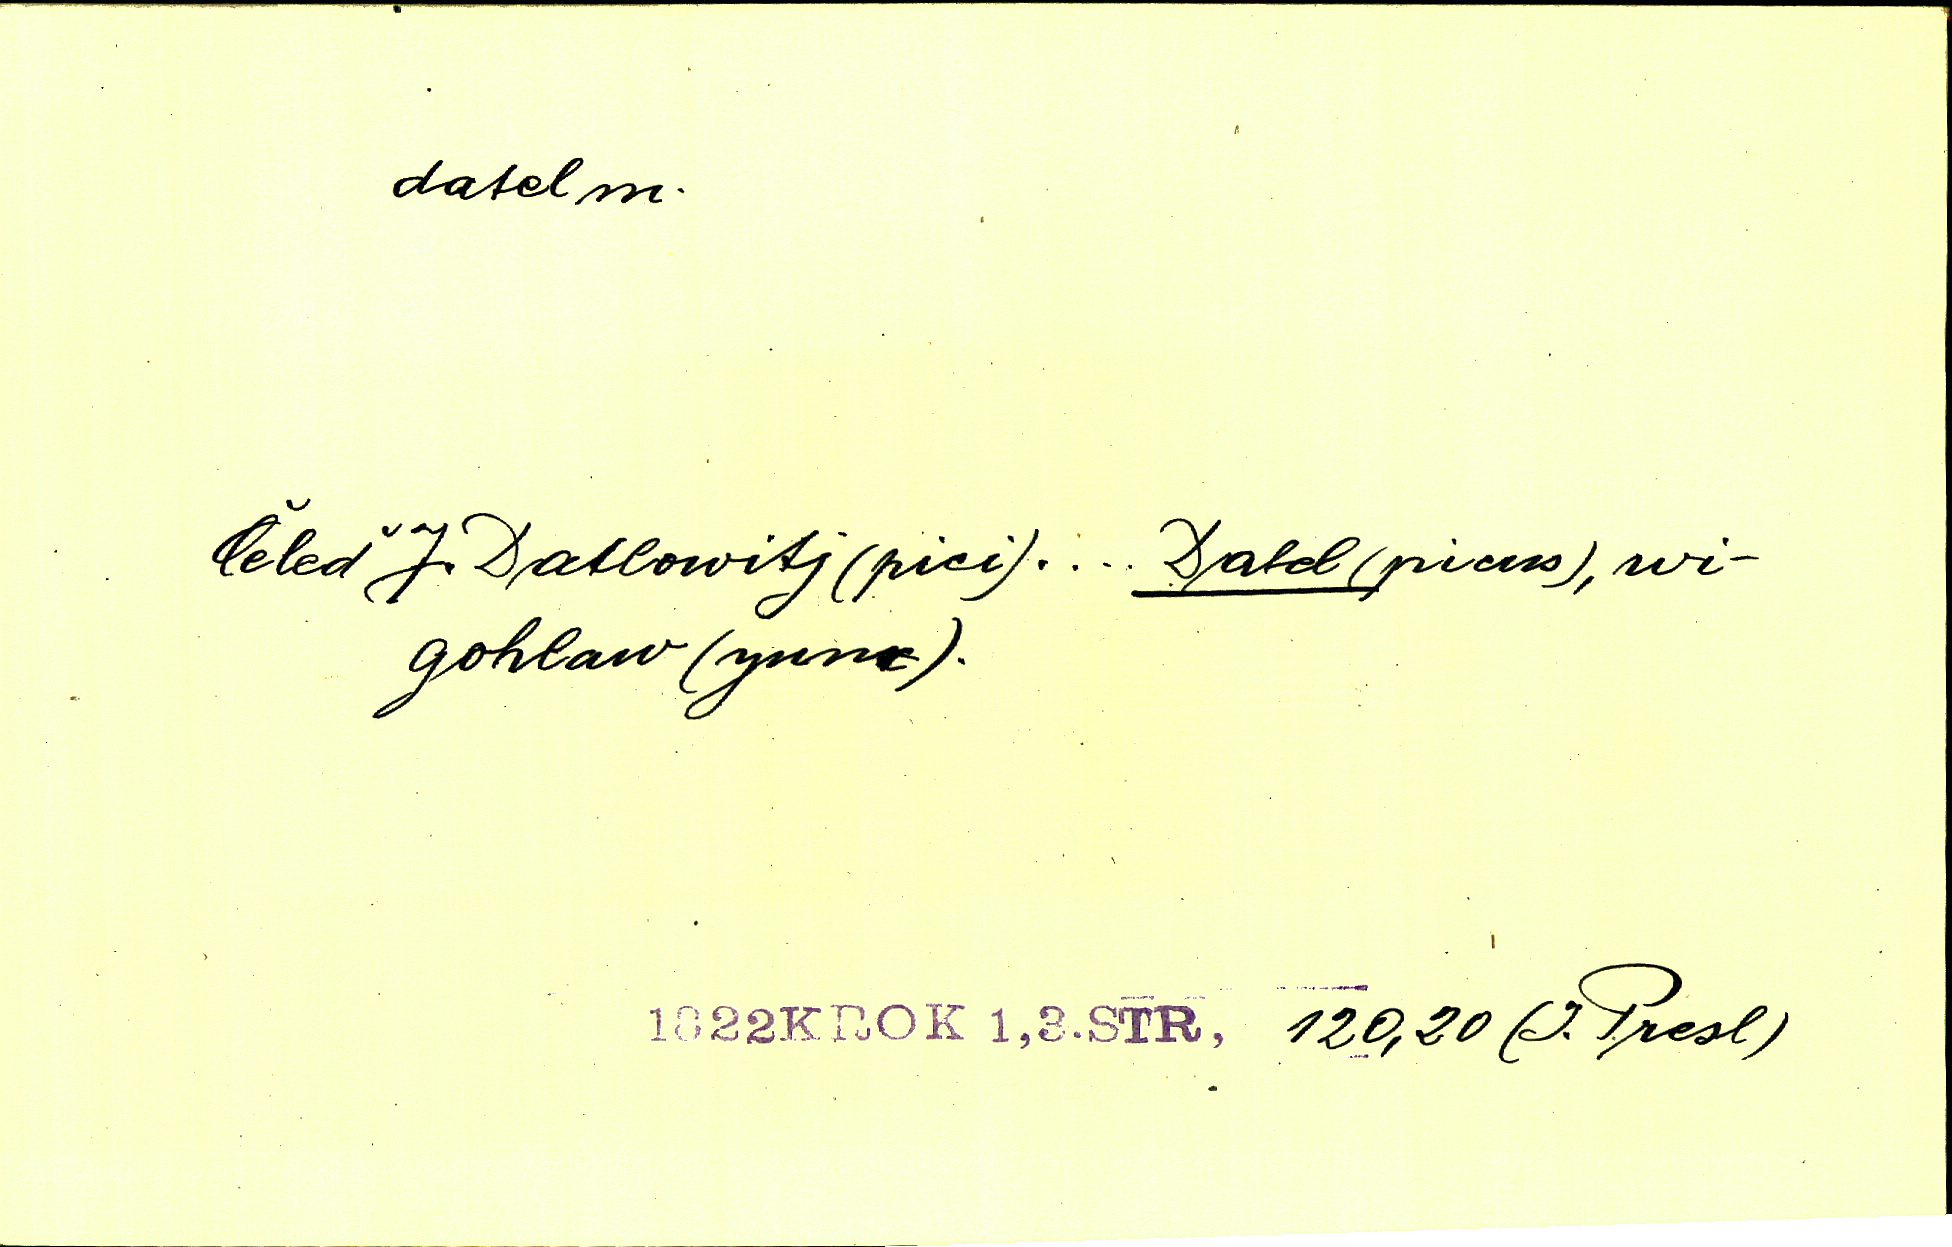 datel m.
Čeleď J. Datlowitj (pici). ... Datel (picus), wi-
gohlaw (yunx).
1822 KROK 1,3.STR, 120,20 (J. Presl)